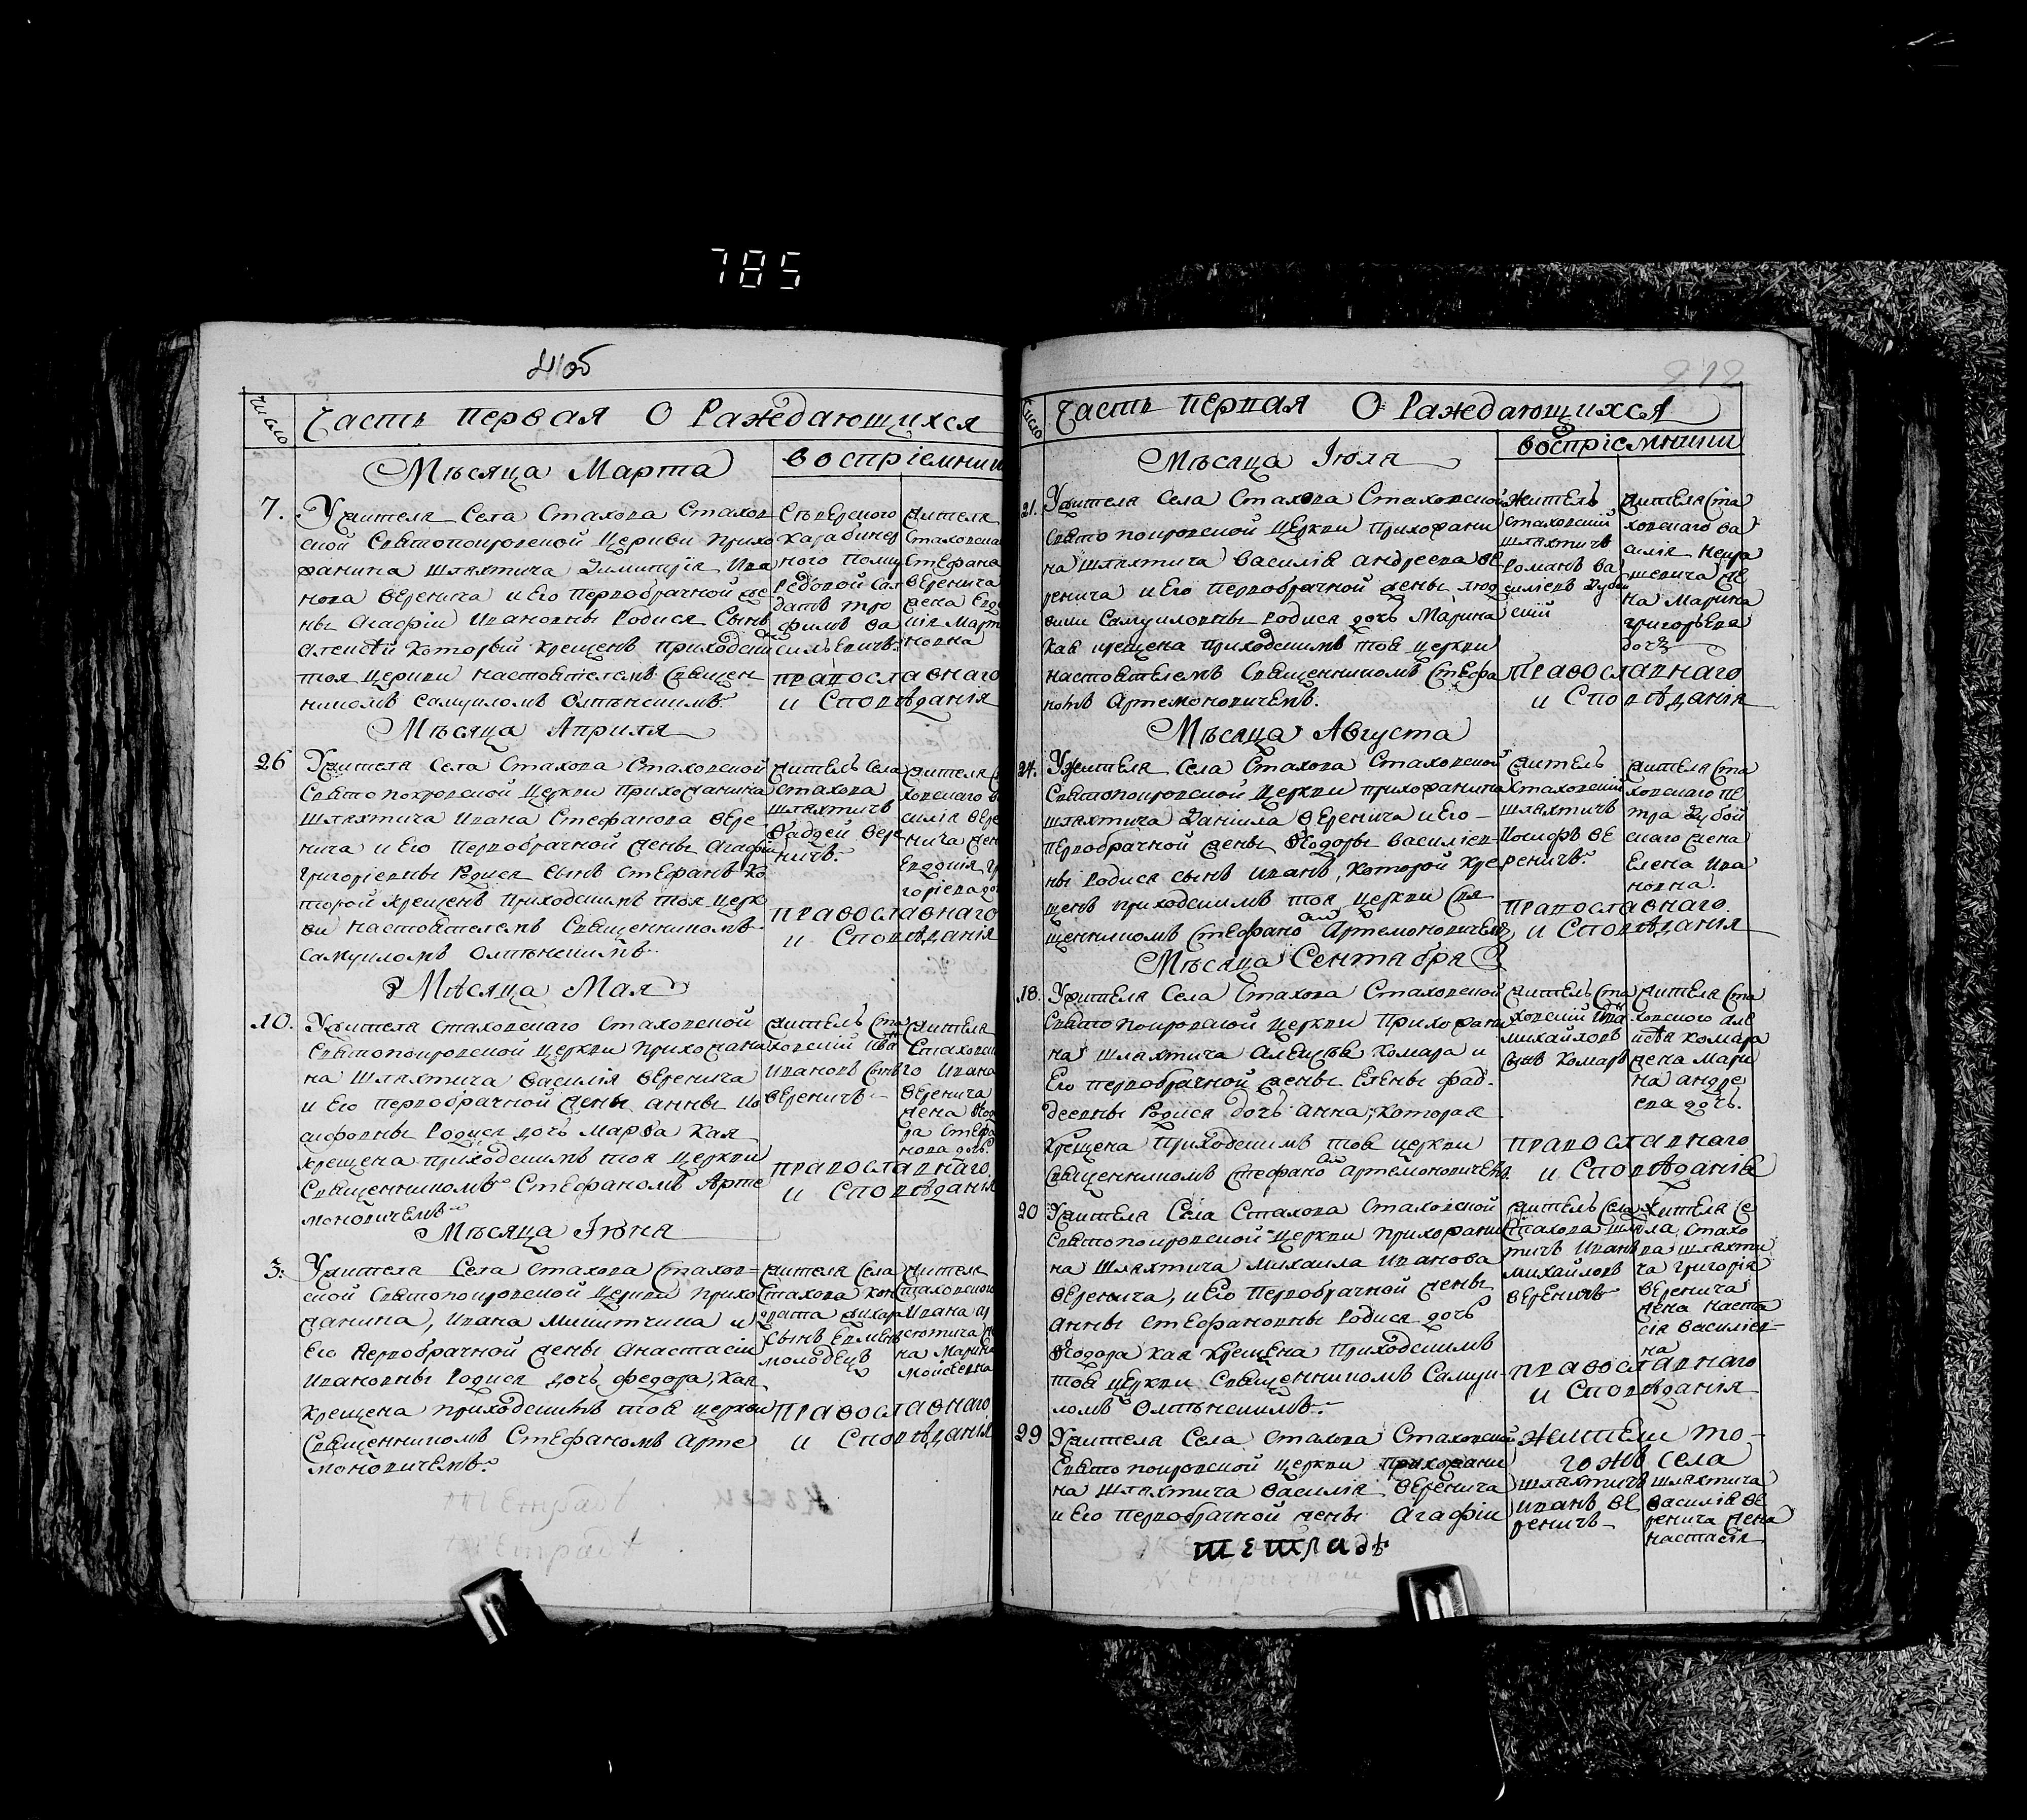 785
Число
Часть первая О Раждающихся
Мѣсяца Марта
воспріемни
7.
Ужителя Села Стахова Стахов
ской Святопокровской Церкви прихо
жанина шляхтича Димитрія Ива
нова Веренича и Его первобрачной же
ны Агафіи Ивановны Родися Сынъ
Алексѣй который крещенъ приходски
тоя Церкви настоятелемъ Священ
никомъ Самуиломъ
Сѣверского
карабинер
ного полку
рядовой сол
датъ тро
фимъ ва
сильевичъ
жителя
Стаховска
Стефана
Веренича
жена Евдо
кія Март
новна
православнаго
и Споведанія
Мѣсяца Априля
26
Ужителя Села Стахова Стаховской
Святопокровской Церкви прихожанина
шляхтича Ивана Стефанова Вере
нича и Его первобрачной жены Агафіи
Григоріевны Родися Сынъ Стефанъ ко
торой крещенъ приходскимъ тоя церк
ви настоятелемъ Священникомъ
Самуиломъ
житель села
Стахова
шляхтичъ
Фаддей Вере
ничъ
жителя
ховскаго ва
силія Вере
нича жен
Евдокія гр
горіева до
православнаго
и Споведанія
Мѣсяца Мая
10.
Ужителя Стаховскаго Стаховской
Святопокровской церкви прихожани
на шляхтича Василія Веренича
и Его первобрачной жены Анны Ио
сифовны Родися дочь Марѳа кая
крещена приходскимъ тоя Церкви
Священникомъ Стефаномъ Арте
моновичемъ
житель Ста
ховскій
Ивановъ
Вереничъ
жителя
Стаховск
го Ивана
Веренича
жена
ра Стефа
нова дочь
православнаго
и Споведанія
Мѣсяца Іюня
3.
Ужителя Села Стахова Стахов=
ской Святопокровской Церкви прихо
жанина, Ивана Микитчина и
Его первобрачной жены Анастасіи
Ивановны Родися дочь Федора, кая
крещена приходскимъ тоя церкви
Священникомъ Стефаномъ Арте
моновичемъ
жителя Села
Стахова кон
драта
Сынъ
молодецъ
жителя
Стаховского
Ивана
на Марина
Мойсеевна
православнаго
и Споведанія
212
Число
Часть первая О Раждающихся
воспріемники
Мѣсяца Іюля
21.
Ужителя Села Стахова Стаховской
Свято покровской Церкви Прихожани
на шляхтича Василія Андреева Ве
ренича и Его первобрачной жены Люд
вики Самуиловны Родися дочь Марина
кая крещена Приходскимъ тоя церкви
настоятелемъ Священникомъ Стефа
номъ Артемоновичемъ.
Житель
Стаховскій
шляхтичъ
Романъ Ва
силіевъ Дубой
скій
жителя Ста
ховскаго Ва
силія
шевича же
на Марина
Григорьева
дочь
Православнаго
и Споведанія
Мѣсяца Августа
24.
Ужителя Села Стахова Стаховской
Святопокровской Церкви прихожанина
шляхтича Даніила Веренича и Его
первобрачной жены Ѳеодоры Василіев-
ны Родися сынъ Иванъ, которой кре
щенъ приходскимъ тоя церкви Свя
щенникомъ Стефаномъ Артемоновичемъ
житель
Стаховскій
шляхтичъ
Іосифъ Ве
реничъ
жителя Ста
ховскаго Пе
тра Дубой
скаго жена
Елена Ива
новна.
православнаго
и Споведанія
Мѣсяца Сентября
18.
Ужителя Села Стахова Стаховской
Святопокровской Церкви Прихожани
на шляхтича Алексѣя Комара и
Его первобрачной жены Елены Фад-
деевны Родися дочь Анна, которая
крещена Приходскимъ тоя церкви
Священникомъ Стефаномъ Артемоновичемъ
житель Ста
ховскій
михайловъ
сынъ Комаръ
жителя Ста
ховского Але
ксѣя Комара
жена Мари
на Андре
ева дочь.
православнаго
и Споведанія
20
Ужителя Села Стахова Стаховской
Святопокровской Церкви прихожани
на шляхтича Михаила Иванова
Веренича, и Его Первобрачной жены
Анны Стефановны Родися дочь
Ѳеодора кая крещена Приходскимъ
тоя Церкви Священникомъ Самуи-
ломъ
житель Села
Стахова шлях
тичъ Иванъ
михайловъ
Вереничъ
Жителя Се
ла Стахо
ва шляхти
ча Григорія
Веренича
жена Наста
сія Василіев-
на
православнаго
и Споведанія
29
Ужителя Села Стахова Стаховской
Свято покровской Церкви прихожани
на шляхтича Василія Веренича
и Его Первобрачной жены Агафіи
жители то-
гожъ села
шляхтичъ
Иванъ Ве
реничъ
шляхтича
Василія Ве
ренича жена
Настасія
тетрадь